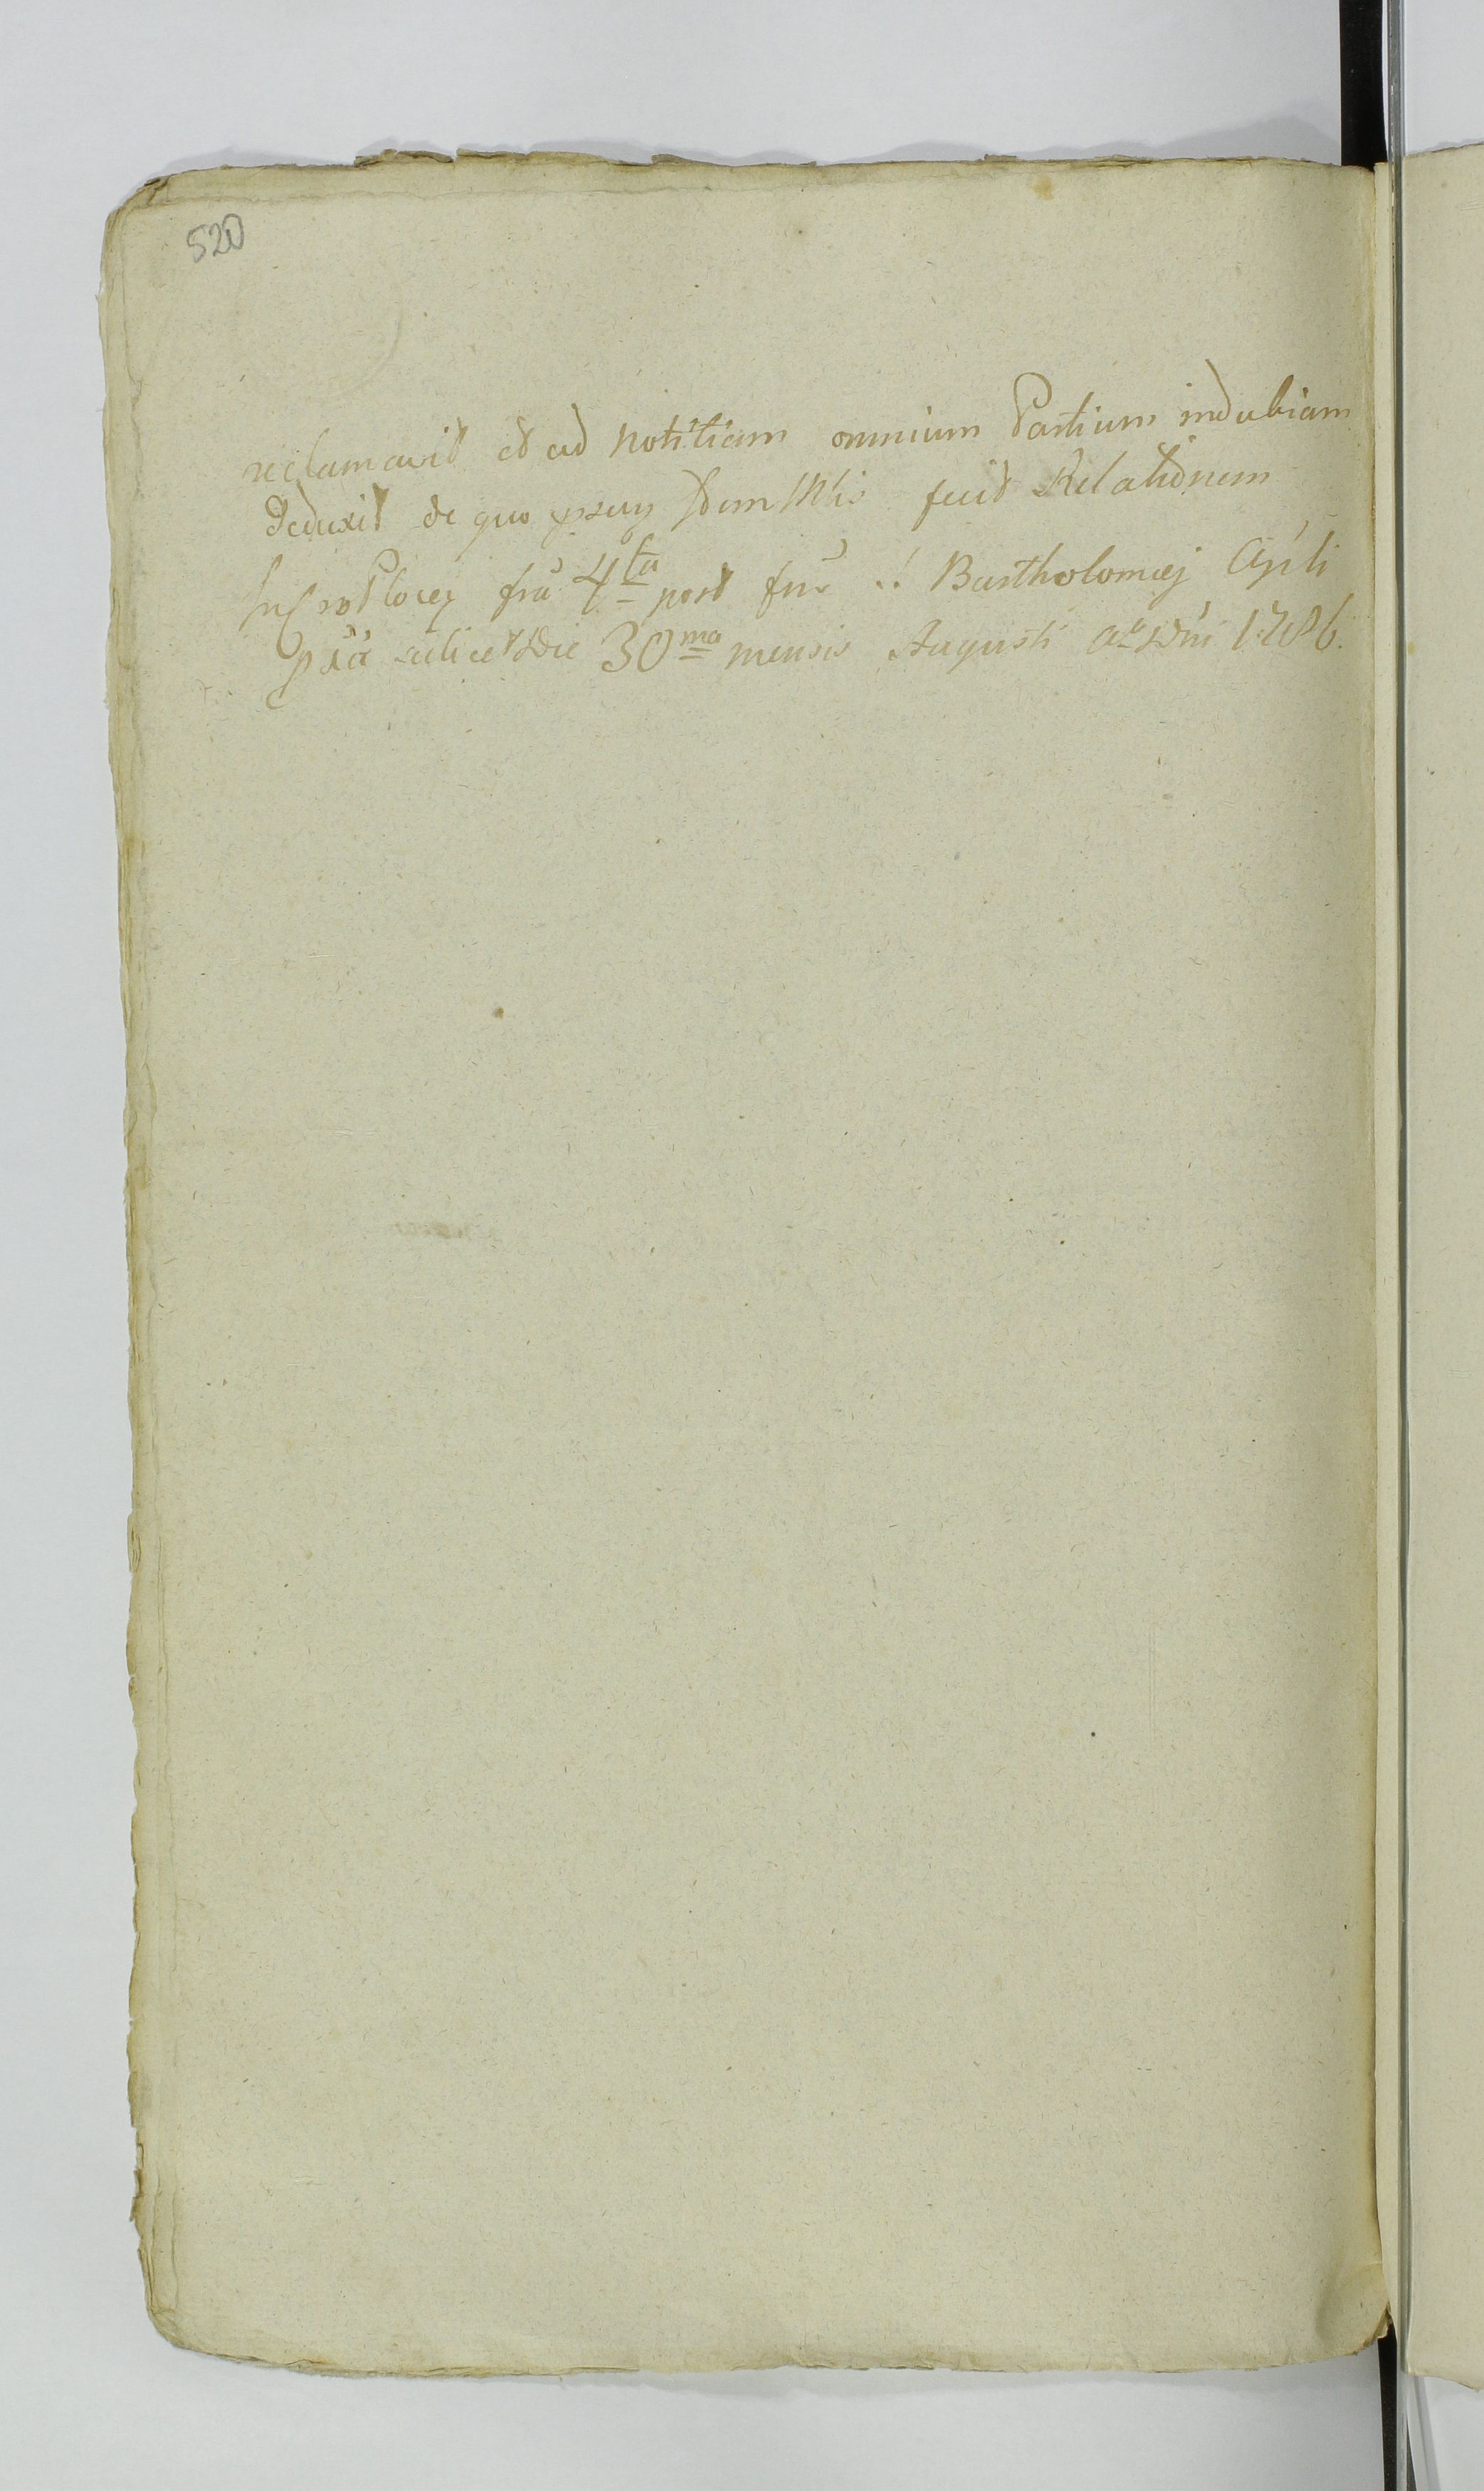 520
reclamavit et ad notitiam omnium Partium indubiam
deduxit de quo fecit Relationem
fra 4ta post Bartholomæj Apli
pxa scilicet die 30ma mensis Augusti ao Dni 1786.